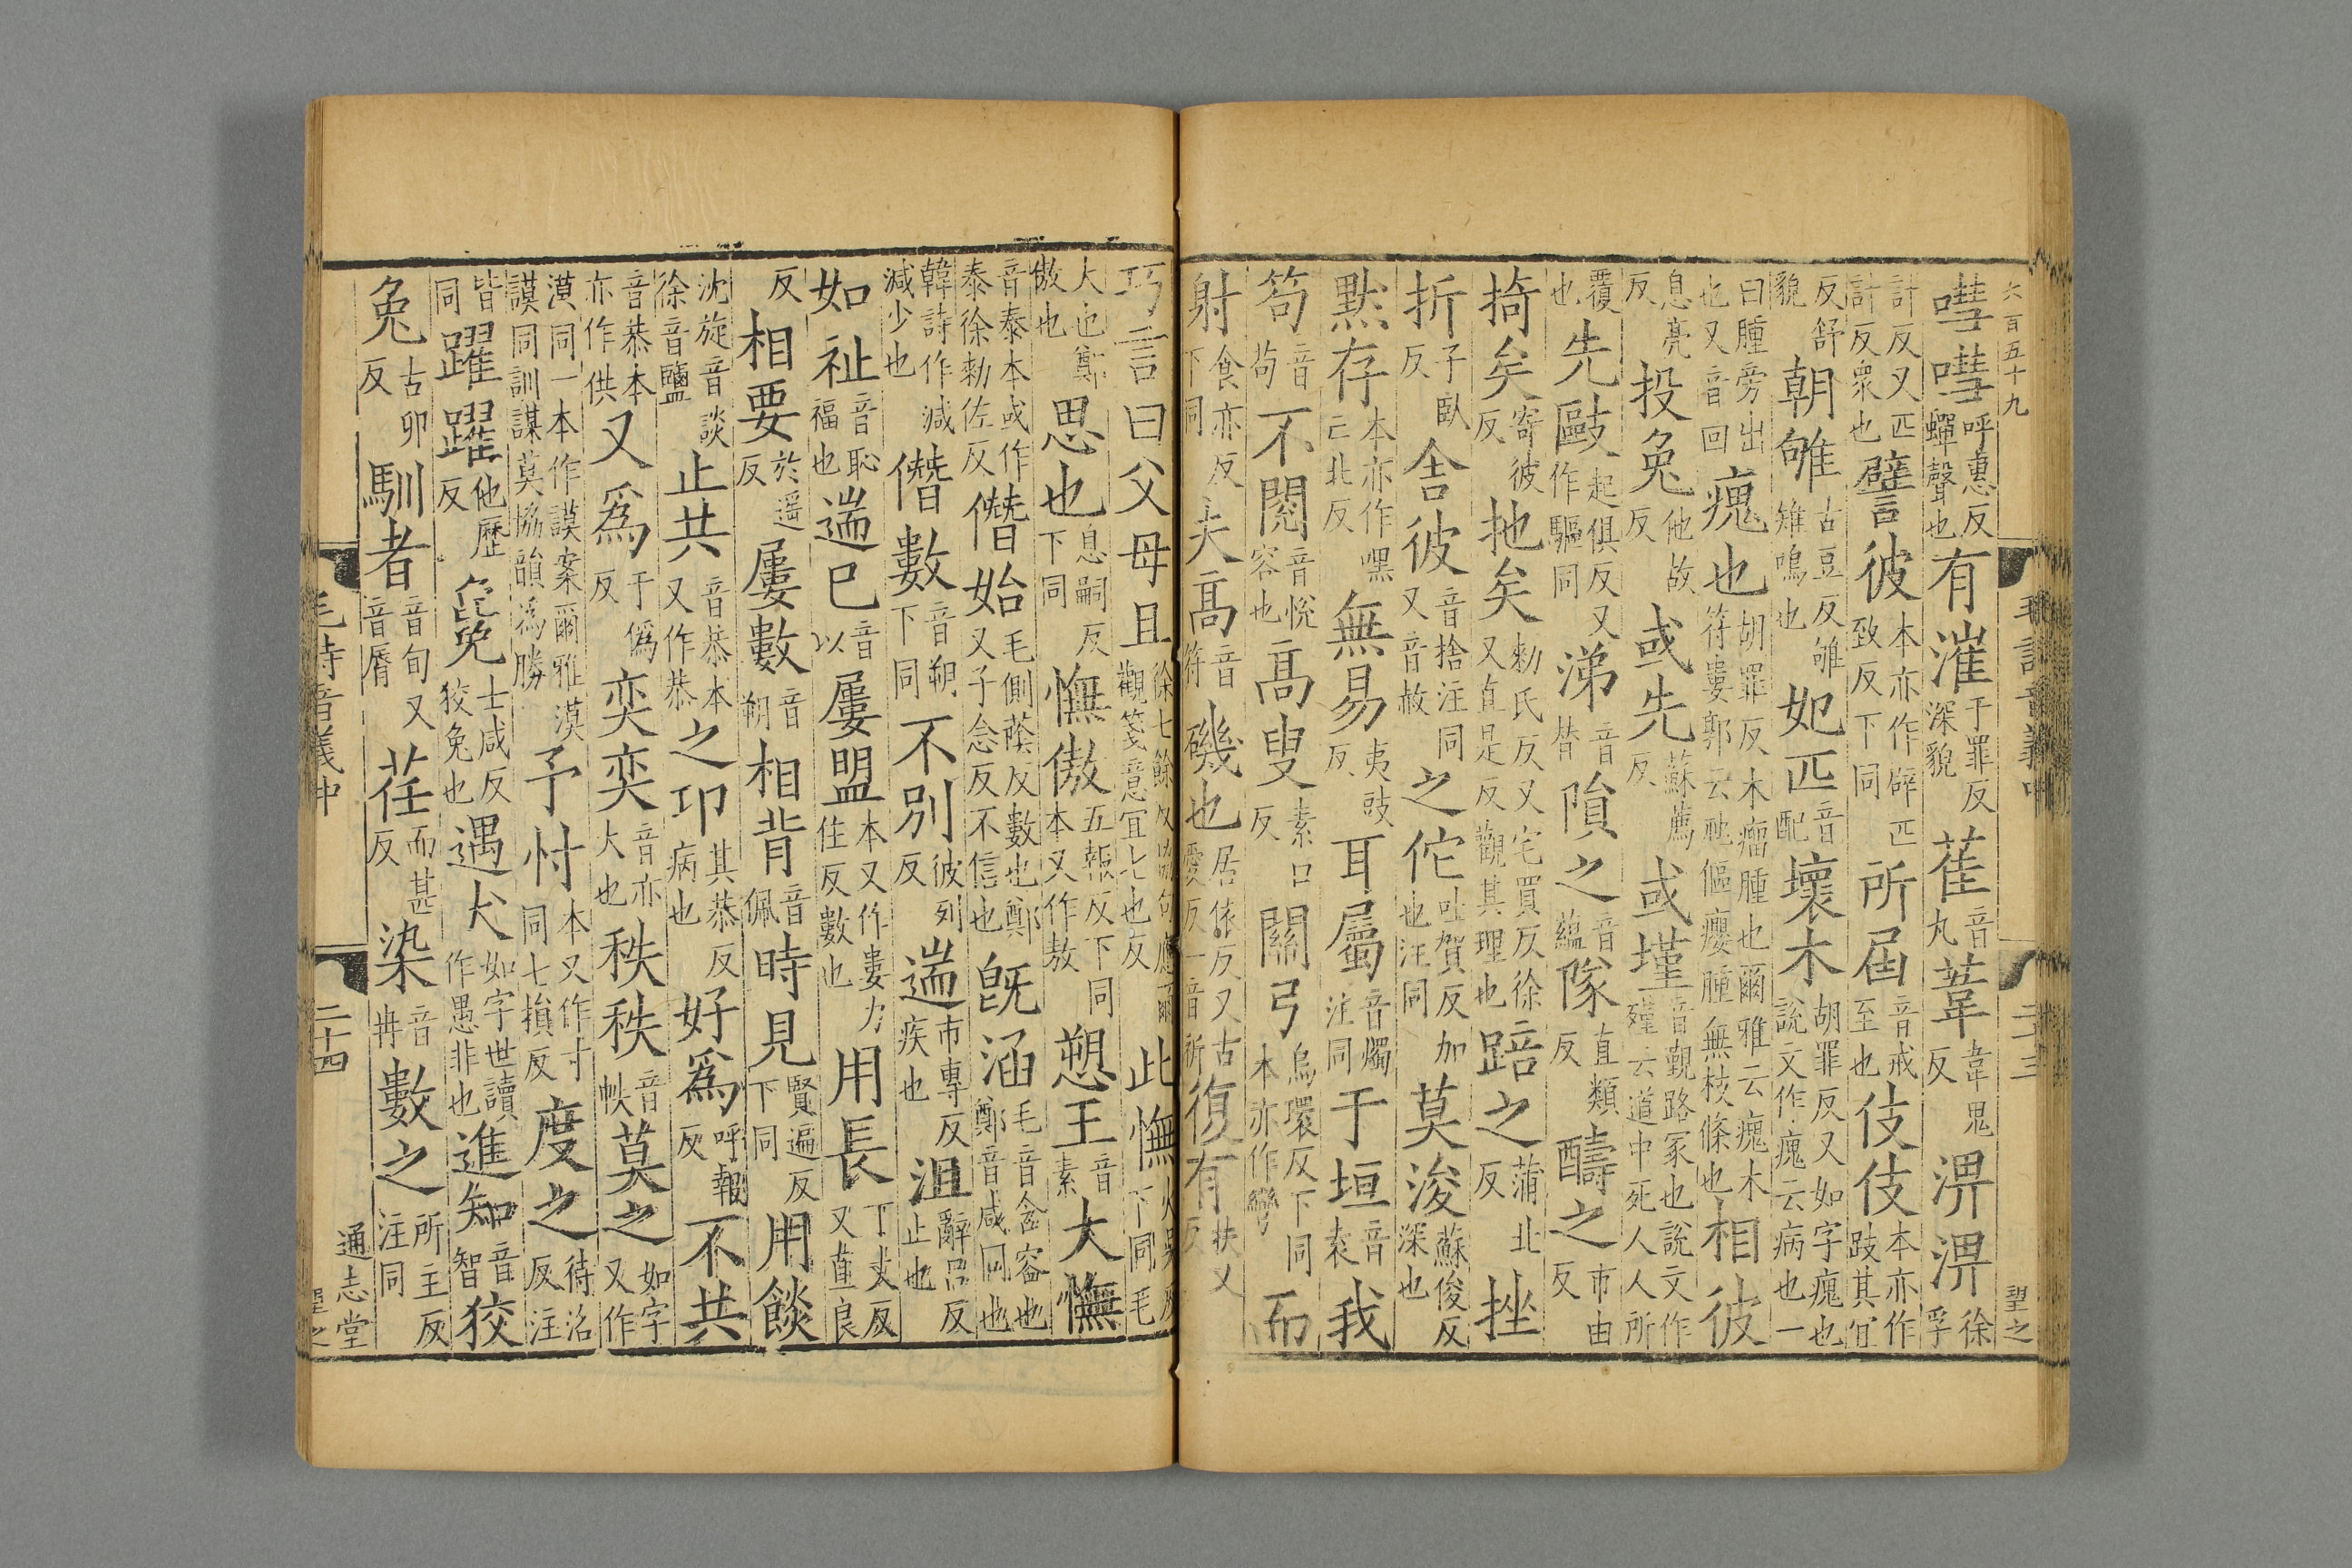 六百五十九
毛詩音義中 二十三 望之
嘒嘒呼惠反蟬聲也有漼千罪反深貌萑音丸葦韋鬼反淠淠徐孚
計反又匹計反眾也譬彼本亦作辟匹致反下同所屆音戒至也伎伎本亦作跂其宜
反舒貌朝雊古豆反雊雉鳴也妃匹音配壞木胡罪反又如字瘣也說文作瘣云病也一
曰腫旁出也又音回瘣也胡罪反木瘤腫也爾雅云瘣木苻婁郭云虺傴癭腫無枝條也相彼
息亮反投兔他故反或先蘇薦反或墐音覲路冢也說文作殣云道中死人人所
覆也先敺起俱反又作驅同涕音替隕之音蘊隊直類反醻之市由反
掎矣寄彼反扡矣勑氏反又宅買反徐又直是反觀其理也踣之蒲北反挫
折子臥反舍彼音捨注同又音赦之佗吐賀反加也注同莫浚蘇俊反深也
默存本亦作嘿亡北反無易夷豉反耳屬音燭注同于垣音袁我
笱音苟不閱音悅容也高叟素口反關弓烏環反下同本亦作彎而
射食亦反下同夫高音符磯也居依反又古愛反一音祈復有扶又反
巧言曰父母且徐七餘反協句應爾觀箋意宜七也反此憮火吳反下同毛
大也鄭傲也思也息嗣反下同憮傲五報反下同本又作敖愬王音素大憮
音泰本或作泰徐勑佐反僭始毛側蔭反數也鄭又子念反不信也旣涵毛音含容也鄭音咸同也
韓詩作減減少也僭數音朔下同不別彼列反遄市專反疾也沮辭呂反止也
如祉音恥福也遄已音以屢盟本又作婁力住反數也用長丁丈反又直良
反相要於遥反屢數音朔相背音佩時見賢遍反下同用餤
沈旋音談徐音鹽止共音恭本又作恭之邛其恭反病也好爲呼報反不共
音恭本亦作供又爲于僞反奕奕音亦大也秩秩音帙莫之如字又作
漠同一本作謨案爾雅漠謨同訓謀莫協韻爲勝予忖本又作寸同七損反度之待洛反注
皆同躍躍他歷反毚士咸反狡兔也遇犬如字世讀作愚非也進知音智狡
兔古卯反馴者音旬又音脣荏而甚反染音冉數之所主反注同
毛詩音義中 二十四 通志堂
望之